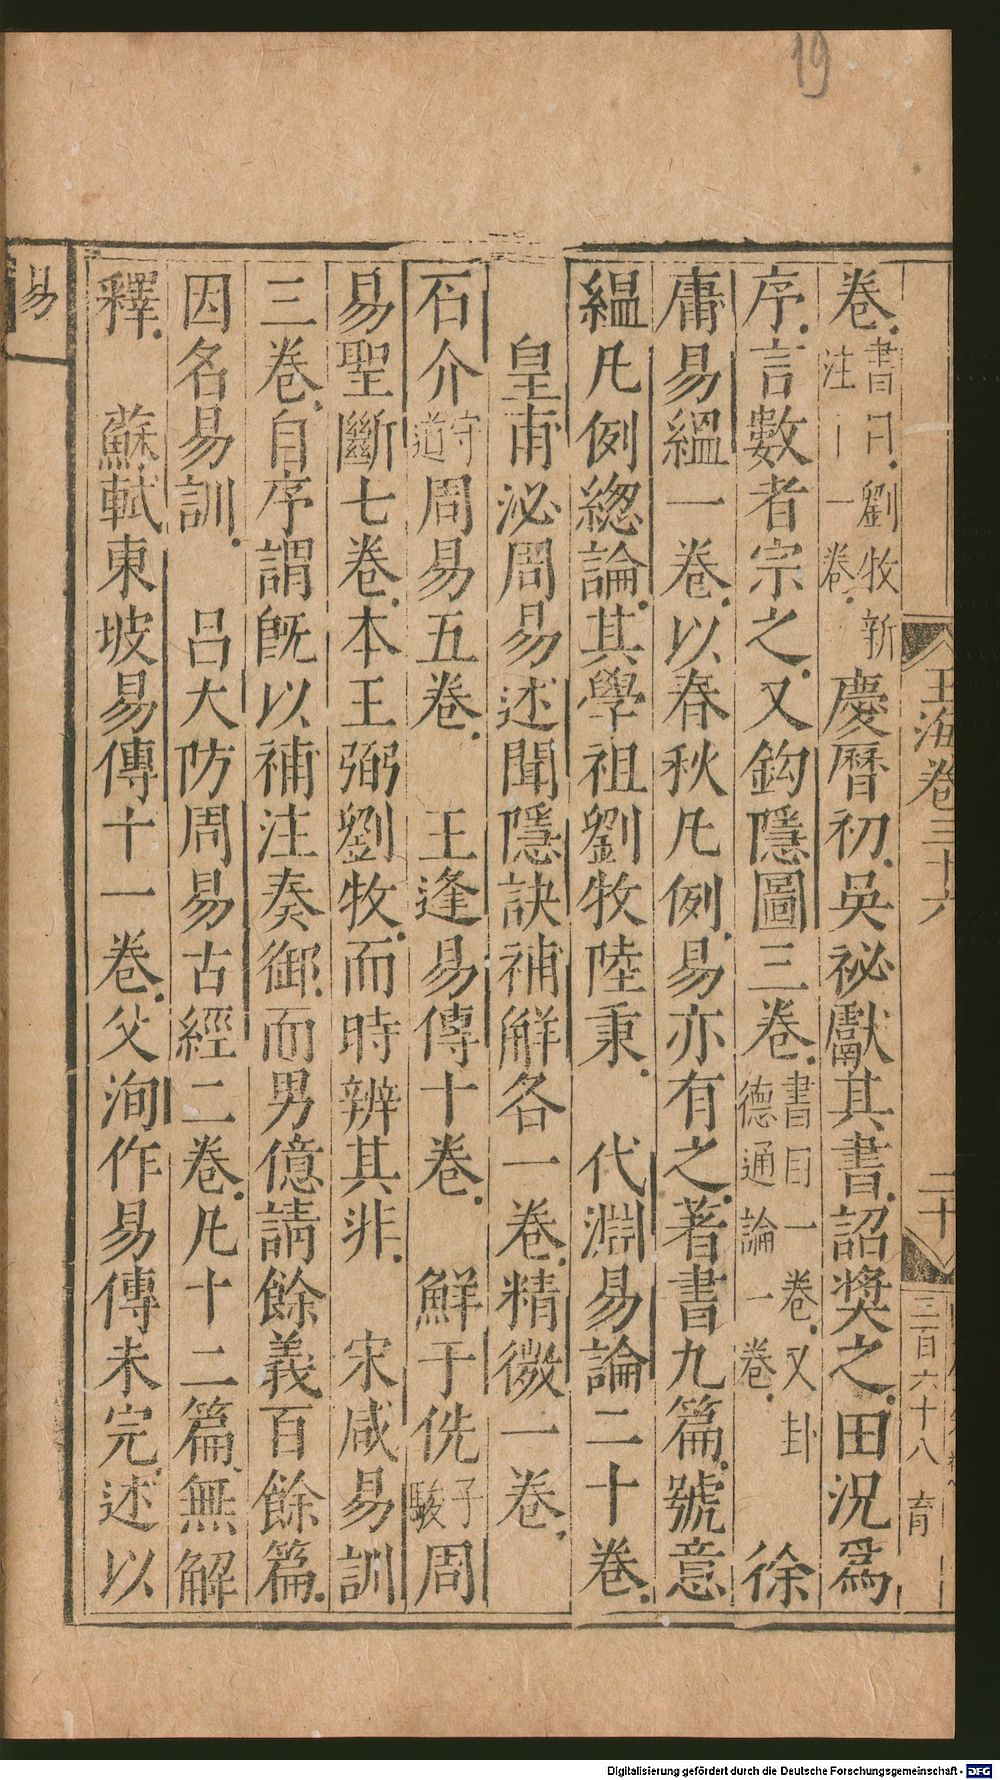 19
玉海卷三十六
二十
三百六十八
育
卷書目劉牧新注一卷慶曆初吳祕獻其書詔奬之田況爲
序言數者宗之又鈎隱圖三卷書目一卷又卦德通論一卷徐
庸易緼一卷以春秋凡例易亦有之著書九篇號意
緼凡例緫論其學祖劉牧陸秉 代淵易論二十卷
皇甫泌周易述聞隱訣補解各一卷精微一卷
石介守道周易五卷 王逢易傳十卷 鮮于侁子駿周
易聖斷七卷本王弼劉牧而時辨其非 宋咸易訓
三卷自序謂旣以補注奏御而男億請餘義百餘篇
因名易訓 呂大防周易古經二卷凡十二篇無解
釋 蘇軾東坡易傳十一卷父洵作易傳未完述以
易
Digitalisierung gefördert durch die Deutsche Forschungsgemeinschaft - DFG